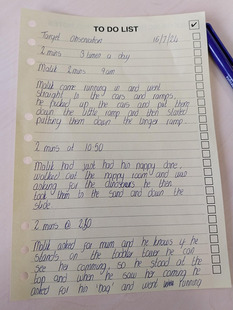 TO DO LIST
Target observation 16/7/24
2 mins 3 times a day
Malik 2 mins 9am
Malik came running in and went
straight to the cars and ramps.
he picked up the cars and put them
down the little ramp and then started
putting them down the longer ramp.
2 mins at 10:50
Malik had just had his nappy done,
walked out the nappy room and was
asking for the dinosaurs he then
took them to the sand and down the
slide.
2 mins @ 2:30
Malik asked for mum and he knows if he
stands on the toddler tower he can
see her comming, so he stood at the
top and when he saw her coming he
asked for his 'bag' and went running